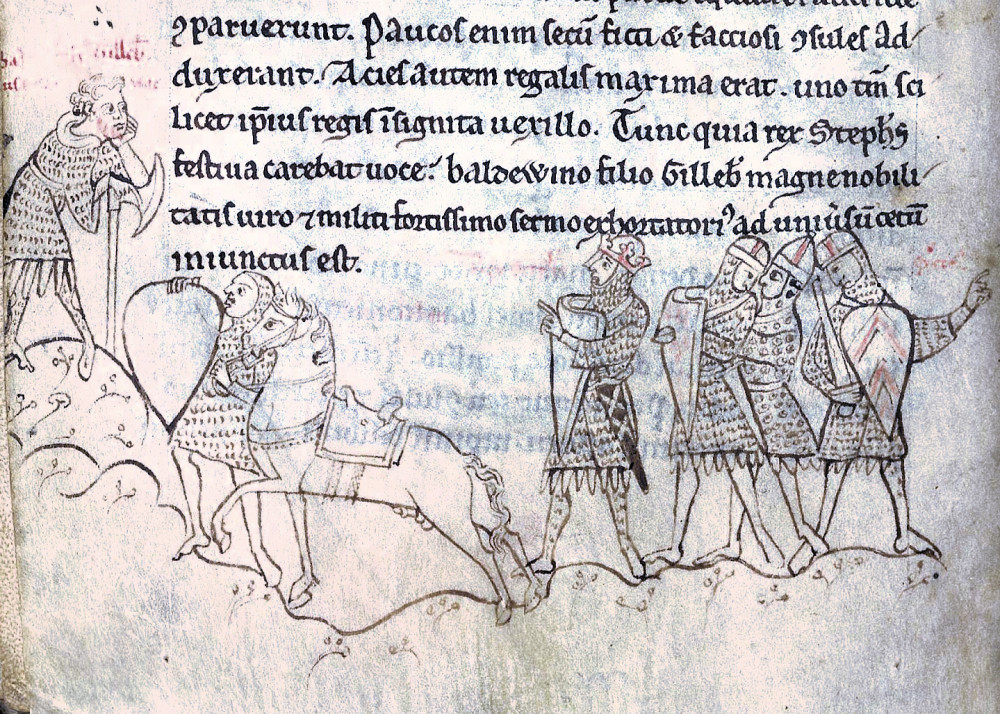 ꝯparuerunt. Paucos enim secū ficti & facciosi ꝯsules ad⸗
duxerant. Acies autem regalis maxima erat. uno tm̄ sci
licet ip̄ius regis īsignita uexillo. Tunc quia rex Steph̄s
festiua carebat uoce⸗ baldewino filio Gilleb̄ magne nobili⸗
tatis uiro ⁊ militi fortissimo sermo exhortatoriꝰ ad
iniunctus est.